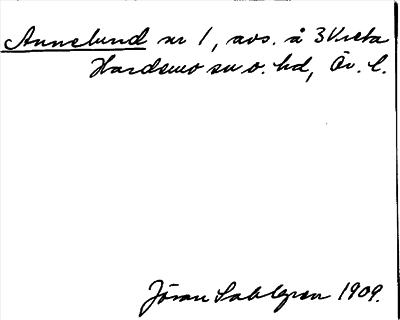 Annelund nr 1, avs. å 3 Kreta
Hardemo sn o. hd, Ör. l.
Jöran Sahlgren 1909.